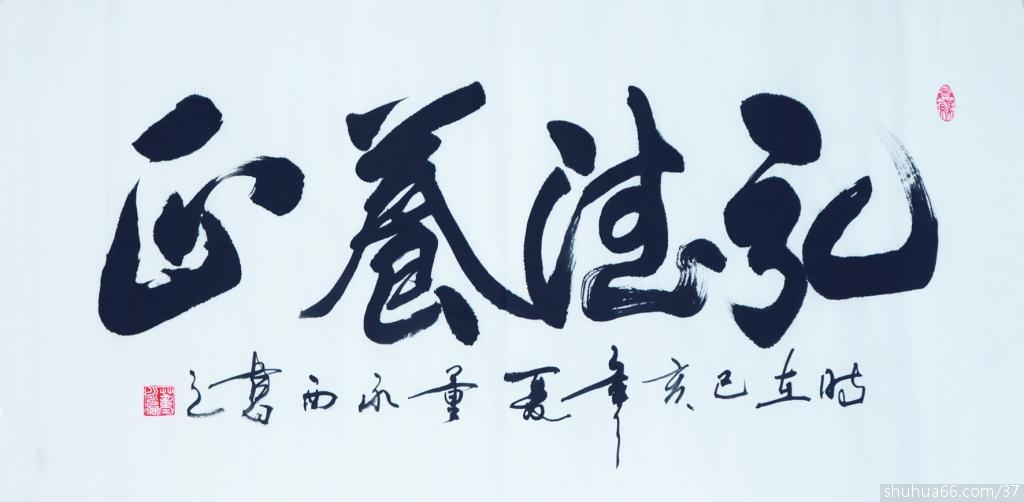 弘德養正
时在己亥年夏董永西書之
shuhua66.com/37